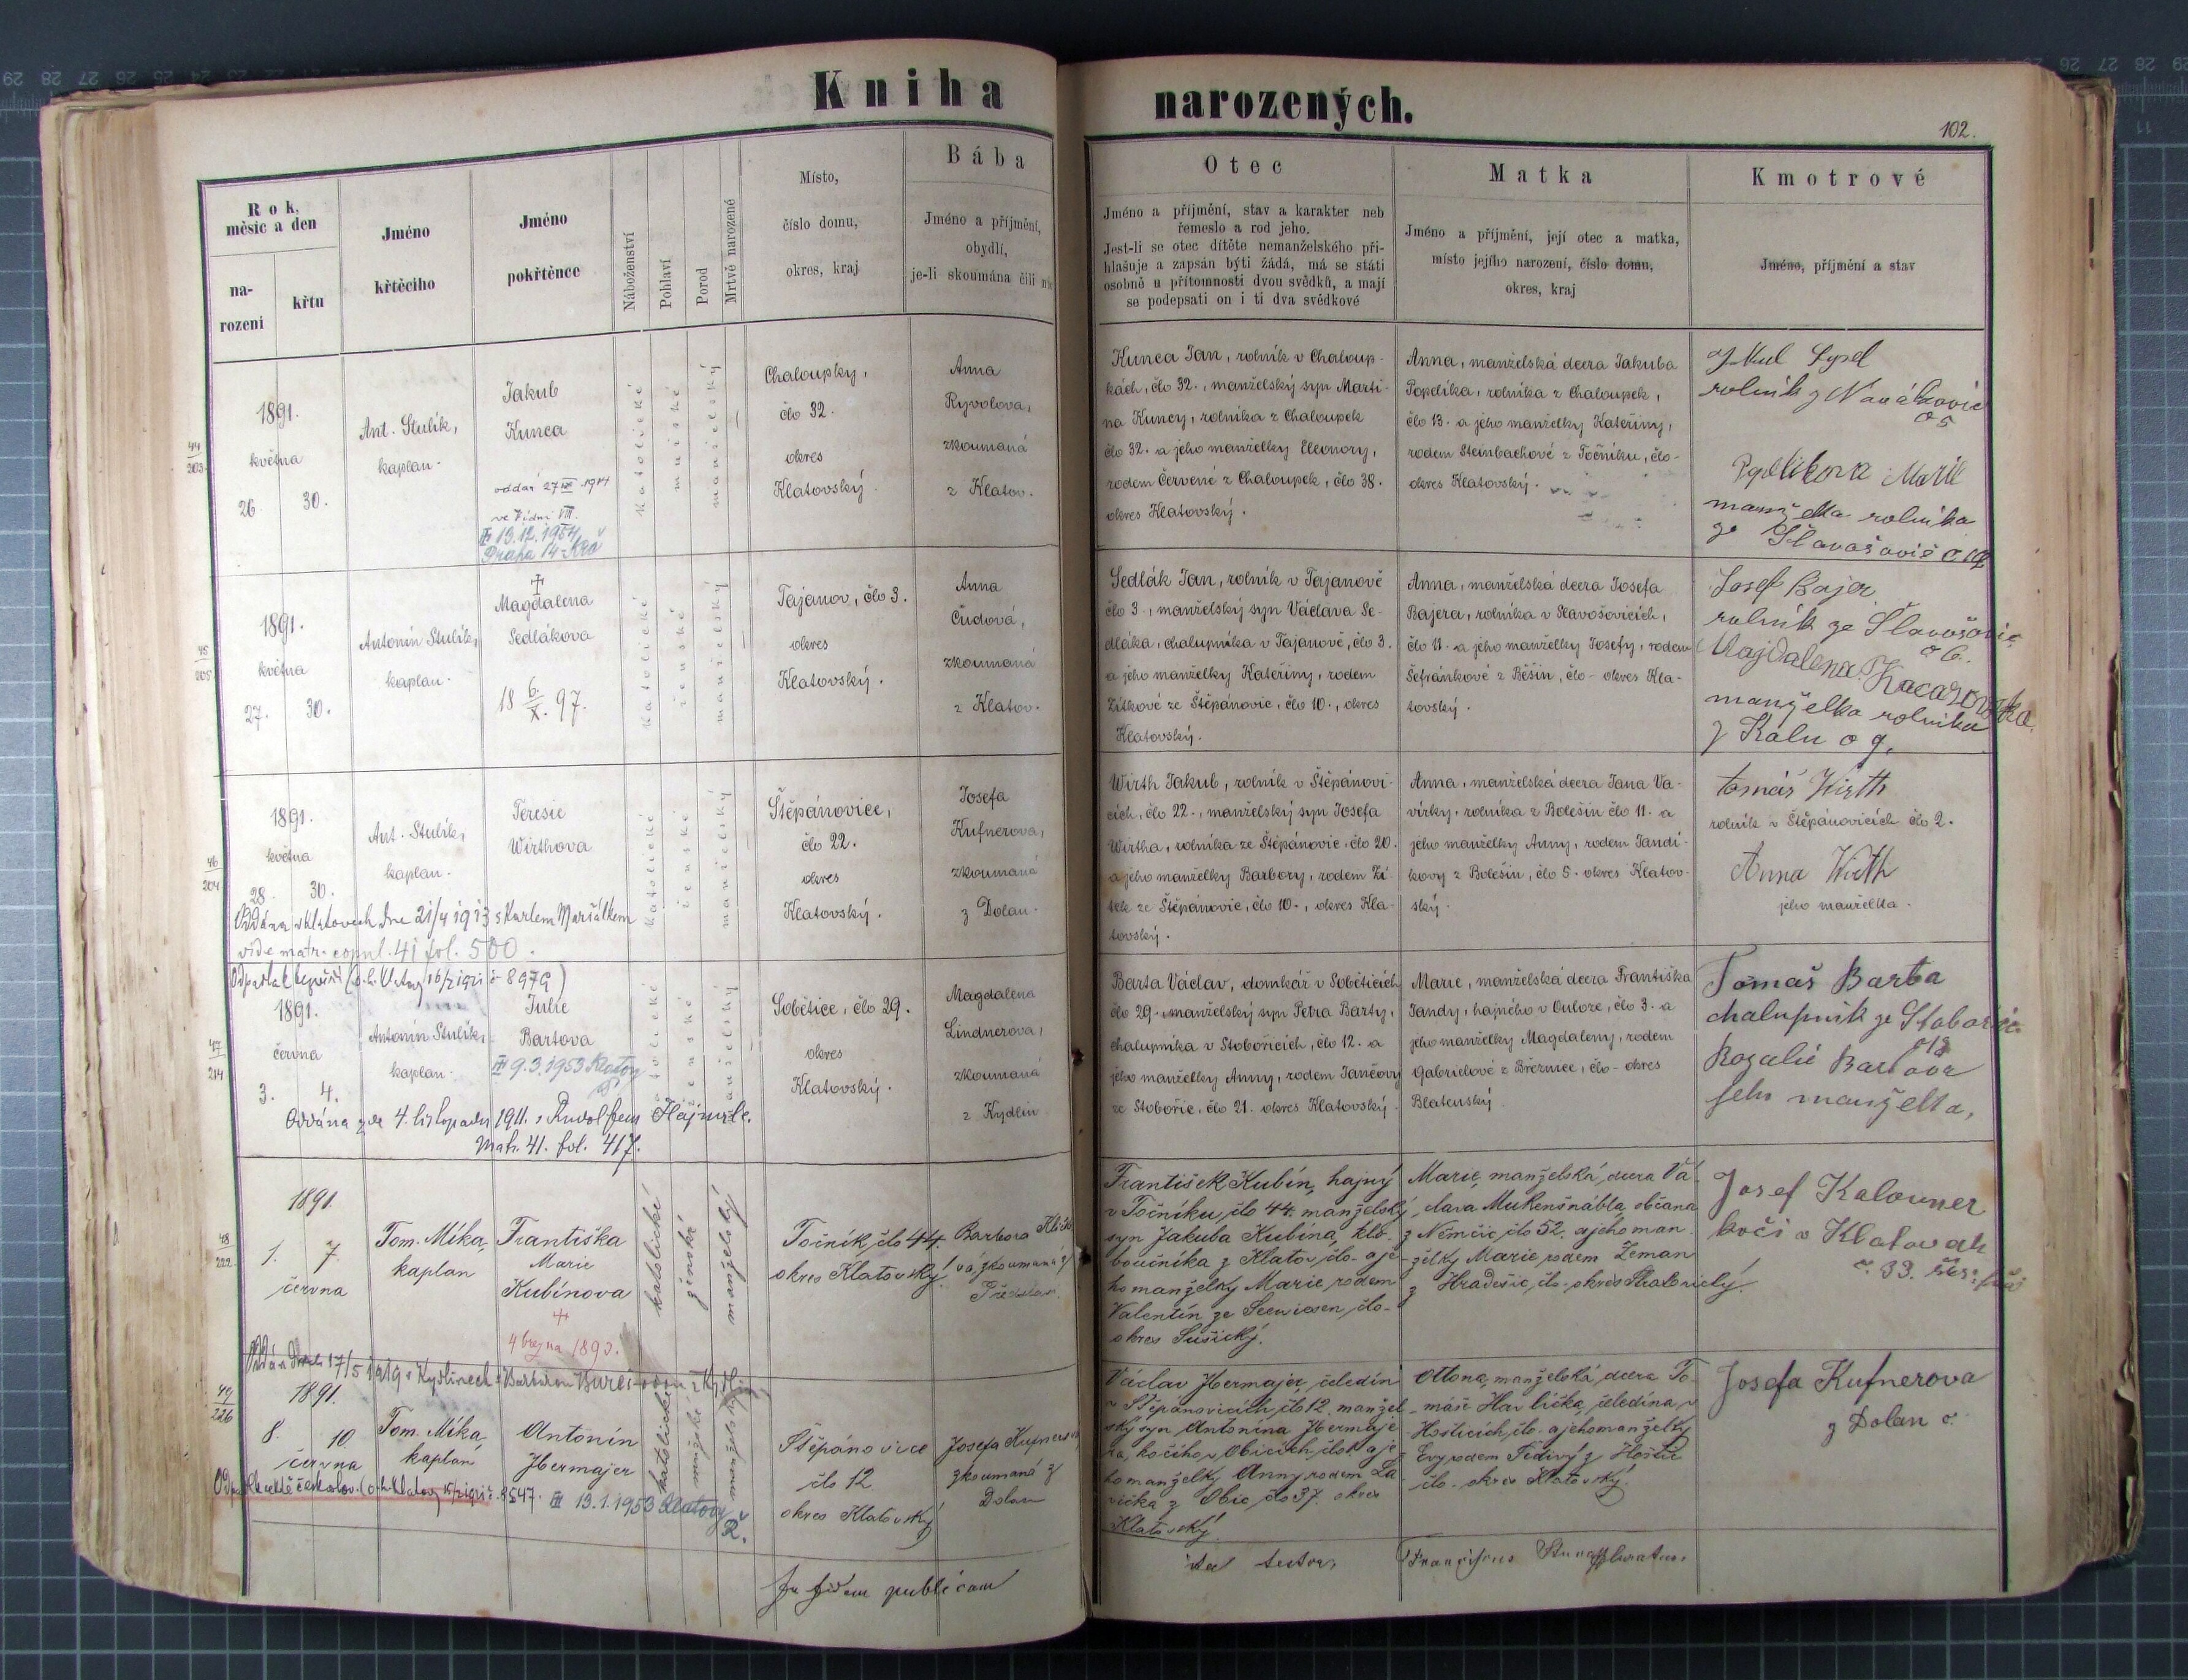 Kniha narozených.
102.
Rok, měsíc a den
na-
rozeni
křtu
Jméno
křtěcího
Jméno
pokřtěnce
Náboženství
Pohlaví
Porod
Mrtvě narozené
Místo,
číslo domu,
okres, kraj
Bába
Jméno a příjmění,
obydlí,
je-li skoumána čili
Otec
Jméno a příjmění, stav a karakter neb
řemeslo a rod jeho.
Jest-li se otec dítěte nemanželského při-
hlašuje a zapsán býti žádá, má se státi
osobně u přítomnosti dvou svědků, a mají
se podepsati on i ti dva svědkové
Matka
Jméno a příjmění, její otec a matka,
místo jejího narození, číslo domu,
okres, kraj
Kmotrové
Jméno, příjmění a stav
44
203.
1891.
května
26
30.
Ant. Stulík,
kaplan.
Jakub
Kunca
oddán 27 1914
ve Vídni VIII.
13.12.1954
Praha 14
katolické
mužské
manželský
Chaloupky,
člo 32.
okres
Klatovský.
Anna
Ryvolova,
zkoumaná
z Klatov.
Kunca Jan, rolník v Chaloup-
kách, člo 32., manželský syn Marti-
na Kuncy, rolníka z Chaloupek
člo 32. a jeho manželky Eleonory,
rodem Červené z Chaloupek, člo 38.
okres Klatovský.
Anna, manželská dcera Jakuba
Popelíka, rolníka z Chaloupek,
člo 13. a jeho manželky Kateřiny,
rodem Steinbachové z Točníku, člo-
okres Klatovský.
rolník z
Marie
manželka rolníka
ze Slavošovic
45
205.
1891.
května
27.
30.
Antonín Stulík,
kaplan.
Magdalena
Sedlákova
18 6/X. 97.
katolické
ženské
manželský
Tajanov, člo 3.
okres
Klatovský.
Anna
Čudová,
zkoumaná
z Klatov.
Sedlák Jan, rolník v Tajanově
člo 3., manželský syn Václava Se-
dláka, chalupníka v Tajanově, člo 3.
a jeho manželky Kateřiny, rodem
Zítkové ze Štěpánovic, člo 10., okres
Klatovský.
Anna, manželská dcera Josefa
Bajera, rolníka v Slavošovicích,
člo 11. a jeho manželky Josefy, rodem
Šefránkové z Běšin, člo - okres Kla-
tovský.
Josef Bajer
rolník ze Slavošovic
č 6.
Magdalena
manželka rolníka
z Kalu
46
204.
1891.
května
28.
30.
Ant. Stulík,
kaplan.
Teresie
Wirthova
Oddána v Klatovech dne 21/4 1913 s Karlem Maršálkem
vide matr. copul. 41 fol. 500.
katolické
ženské
manželský
Štěpánovice,
člo 22.
okres
Klatovský.
Josefa
Kufnerova,
zkoumaná
z Dolan.
Wirth Jakub, rolník v Štěpánovi-
cích, člo 22., manželský syn Josefa
Wirtha, rolníka ze Štěpánovic, člo 20.
a jeho manželky Barbory, rodem Zí-
tek ze Štěpánovic, člo 10., okres Kla-
tovský.
Anna, manželská dcera Jana Va-
vírky, rolníka z Bolešin člo 11. a
jeho manželky Anny, rodem Jandi-
kovy z Bolešin, člo 5. okres Klatov-
ský.
Tomáš Wirth
rolník v Štěpánovicích člo 2.
Anna Wirth
jeho manželka.
47
214
1891.
června
3.
4.
Antonín Stulík,
kaplan.
Julie
Bartova
9.3.1953 Klatovy
Oddána zde 4. listopadu 1911. s Rudolfem Hájmrle.
Matr. 41. fol. 417.
katolické
ženské
manželský
Sobětice, člo 29.
okres
Klatovský.
Magdalena
Lindnerova,
zkoumaná
z Kydlin
Barta Václav, domkář v Soběticích
člo 29. manželský syn Petra Barty,
chalupníka v Stobořicích, člo 12. a
jeho manželky Anny, rodem Jančovy
ze Stobořic, člo 21. okres Klatovský.
Marie, manželská dcera Františka
Jandy, hajného v Ouloze, člo 3. a
jeho manželky Magdaleny, rodem
Gabrielové z Březnice, člo - okres
Blatenský.
Tomáš Barta
chalupník ze Stobořic
Rozalie Bartova
jeho manželka,
48
222
1891.
1.
7
června
Tom. Míka,
kaplan
Františka
Marie
Kubínova
4 března 1893.
katolické
ženské
manželský
Točník, člo 44.
okres Klatovský.
Barbora
zkoumaná z
František Kubín, hajný
v Točníku, člo 44. manželský
syn Jakuba Kubína, klo-
boučníka z Klatov, člo- a je-
ho manželky Marie, rodem
Valentin ze Seewiesen, člo-
okres Sušický.
Marie, manželská dcera Vá-
clava Mukenšnábla, občana
z Němčic, člo 52. a jeho man-
želky Marie, rodem Zeman
z Hradešic, člo- okres Strakonický.
Josef Kalovner
kočí v Klatovech
č. 33.
49
226
Oddán 17/5 1919 v Kydlinech s Barborou Bureš
1891.
8.
10
června
Tom. Míka,
kaplan
Antonín
Hermajer
13.1.1953 Klatovy
katolické
mužské
manželský
Štěpánovice
člo 12
okres Klatovský
Josefa Kufnerová
zkoumaná z
Dolan
Václav Hermajer, čeledín
v Štěpánovicích, člo 12. manžel-
ský syn Antonína Hermaje-
ra, kočího v Obicích, člo 1. a je-
ho manželky Anny, rodem La-
vička z Obic, člo 37. okres
Klatovský.
manželská dcera To-
máše Havlíčka, čeledína v
Hošticích, člo. a jeho manželky
Evy, rodem Šedivý z Hoštic
člo. okres Klatovský.
Josefa Kufnerova
z Dolan č.
In fidem publicam
ita testor,